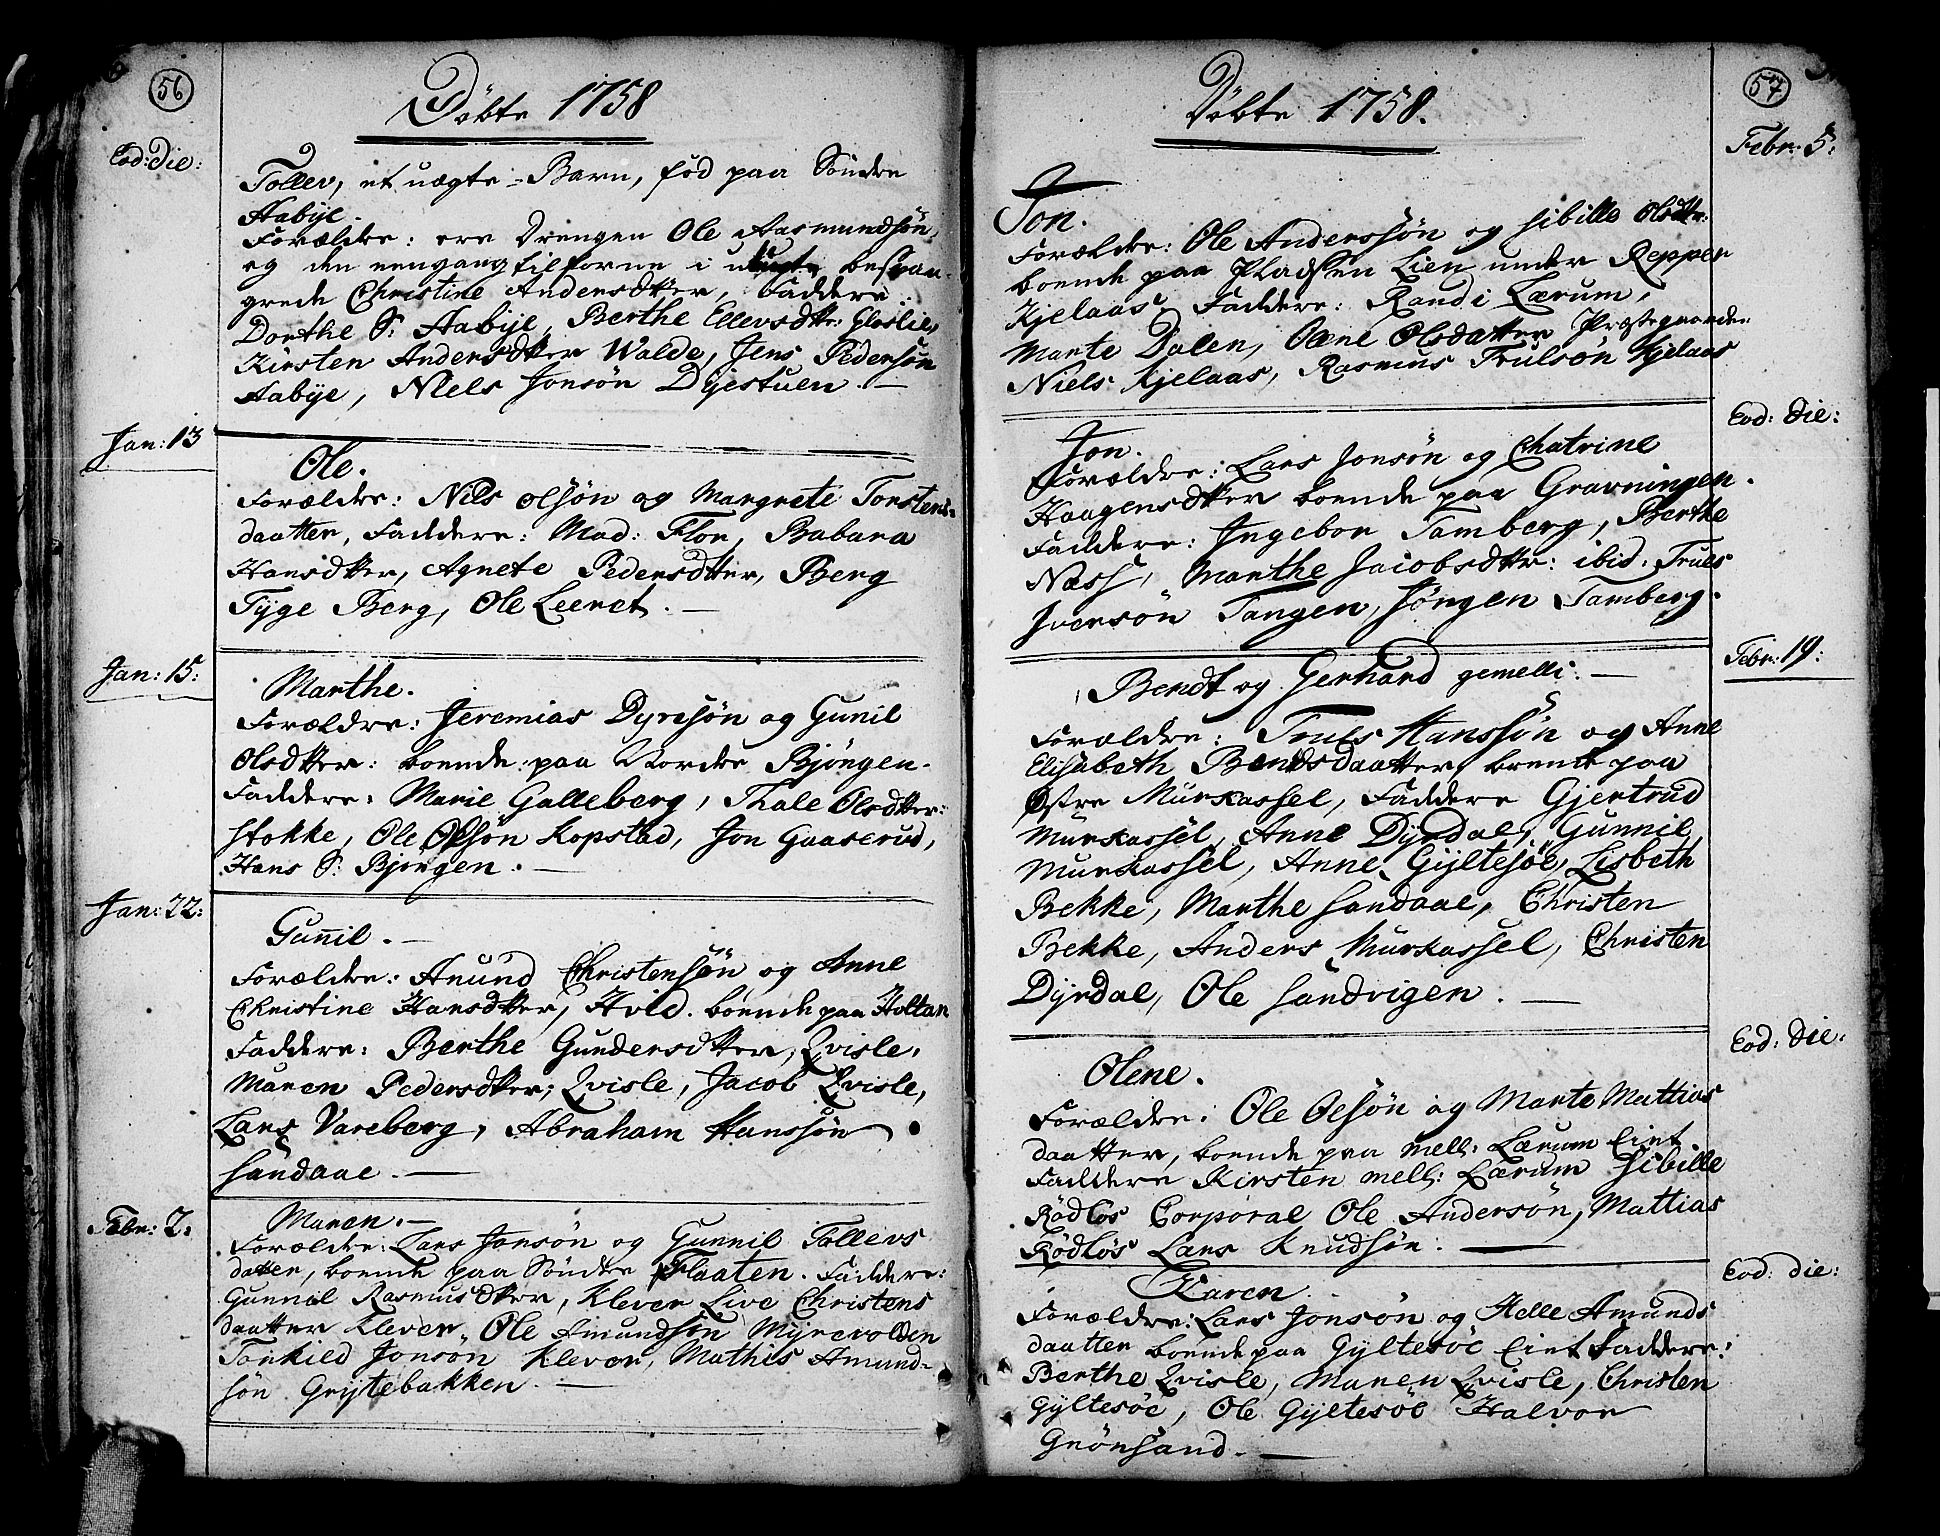 56
Döbte 1758
Eod: die:
Tollev, et uægte - Barn, fød paa Söndre
Aabÿe.
Forældre: ere Drengen Ole Aasmundsøn,
og den eengang tilforne i besvan-
grede Christine Andersdtter, Faddere:
Dorthe S: Aabÿe, Berthe Ellevsdtr: Gloslie,
Kirsten Andersdtter Walde, Jens Pedersøn
Aabÿe, Niels Jonsøn Dÿestuen. —
Jan: 13
Ole.
Forældre: Nils Olsøn og Margrete Torstens-
daatter, Faddere: Mad: Flor, Babara
Hansdtter, Agnete Pedersdtter, Berg
Tÿge Berg, Ole Leeret. —
Jan: 15:
Marthe.
Forældre: Jeremias Dyresøn og Gunil
Olsdtter: boende paa Nordre Bjöngen.
Faddere: Marie Galleberg, Thale Olsdtter:
Stokke, Ole Olsøn Kopstad, Jon Gaaserud,
Hans S: Bjöngen. —
Jan: 22:
Gunil. —
Forældre: Anund Christensøn og Anne
Christine Hansdtter, Hvid. boende paa Holtan
Faddere: Berthe Gundersdtter, Qvisle,
Maren Pedersdtter, Qvisle, Jacob Qvisle,
Lars Vareberg, Abraham Hanssøn
Sandaae. —
Febr: 2:
Maren. —
Forældre: Lars Jonsøn og Gunnil Tollevs
datter, boende paa Söndre Flaaten. Faddere:
Gunnil Rasmusdtter, Klever Live Christens
daatter Klever, Ole Amundsøn Mÿrevolden
Torkild Jonsøn Klever, Mathis Amund-
søn Grÿtebakken. —
57
Döbte 1758.
Febr: 5:
Jon.
Forældre: Ole Anderssøn og Sibille Olsdtr:
boende paa Pladsen Lien under Repper
Kjelaas Faddere: Randi Lærum,
Marte Dalen, Olene Olsdatter Præstegaarden
Niels Kjelaas, Rasmus Trulsøn Kjelaas
Eod: die:
Jon.
Forældre: Lars Jonsøn og Chatrine
Haagensdtter boende paa Gravningen.
Faddere: Ingebor Tamberg, Berthe
Næss, Marthe Jacobsdtr: ibid. Truls
Iversøn Tangen, Jörgen Tamberg.
Febr: 19:
Bendt og Gerhard gemelli. —
Forældre: Truls Hanssøn og Anne
Elisabeth Bendsdaatter, boende paa
Østre Murkassel, Faddere Gjertrud
Murkassel, Anne Dÿrdal, Gunnil
Murkassel, Anne Gÿltesöe, Lisbeth
Bekke, Marthe Sandaae, Christen
Bekke, Anders Murkassel, Christen
Dÿrdal, Ole Sandvigen. —
Eod: die:
Olene.
Forældre: Ole Olsøn og Marte Mattias
daatter, boende paa mell: Lærum Eiet.
Faddere Kirsten mell: Lærum Sibille
Rödlös Corporal Ole Andersøn, Mattias
Rödlös Lars Knudsøn. —
Eod: die:
Karen.
Forældre: Lars Jonsøn og Helle Amunds
daatter boende paa Gÿltesöe Eiet Faddere:
Berthe Qvisle, Maren Qvisle, Christen
Gÿltesöe, Ole Gÿltesöe Halvor
Grönsand. —